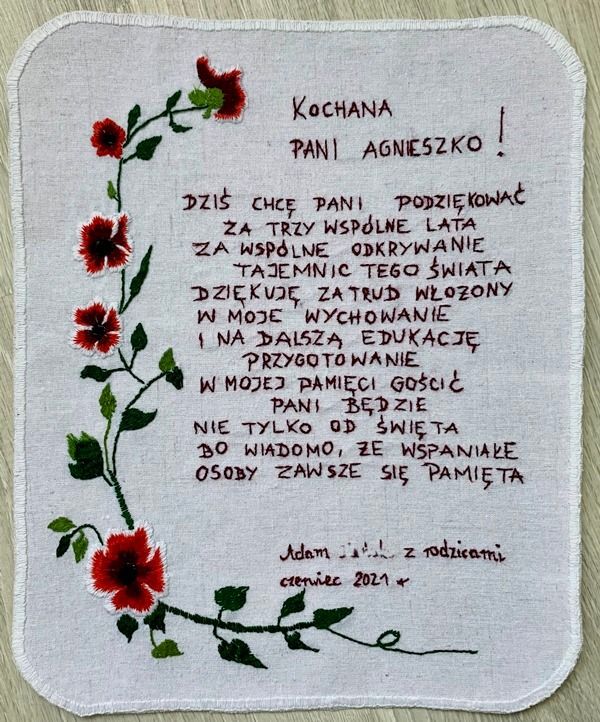 KOCHANA
PANI AGNIESZKO!
DZIŚ CHCĘ PANI PODZIĘKOWAĆ
ZA TRZY WSPÓLNE LATA
ZA WSPÓLNE ODKRYWANIE
TAJEMNIC TEGO ŚWIATA
DZIĘKUJĘ, ZA TRUD WŁOŻONY
W MOJE WYCHOWANIE
I NA DALSZĄ EDUKACJĘ
PRZYGOTOWANIE
W MOJEJ PAMIĘCI GOŚCIĆ
PANI BĘDZIE
NIE TYLKO OD ŚWIĘTA
BO WIADOMO, ŻE WSPANIAŁE
OSOBY ZAWSZE SIĘ PAMIĘTA
Adam z rodzicami
czerwiec 2021 r